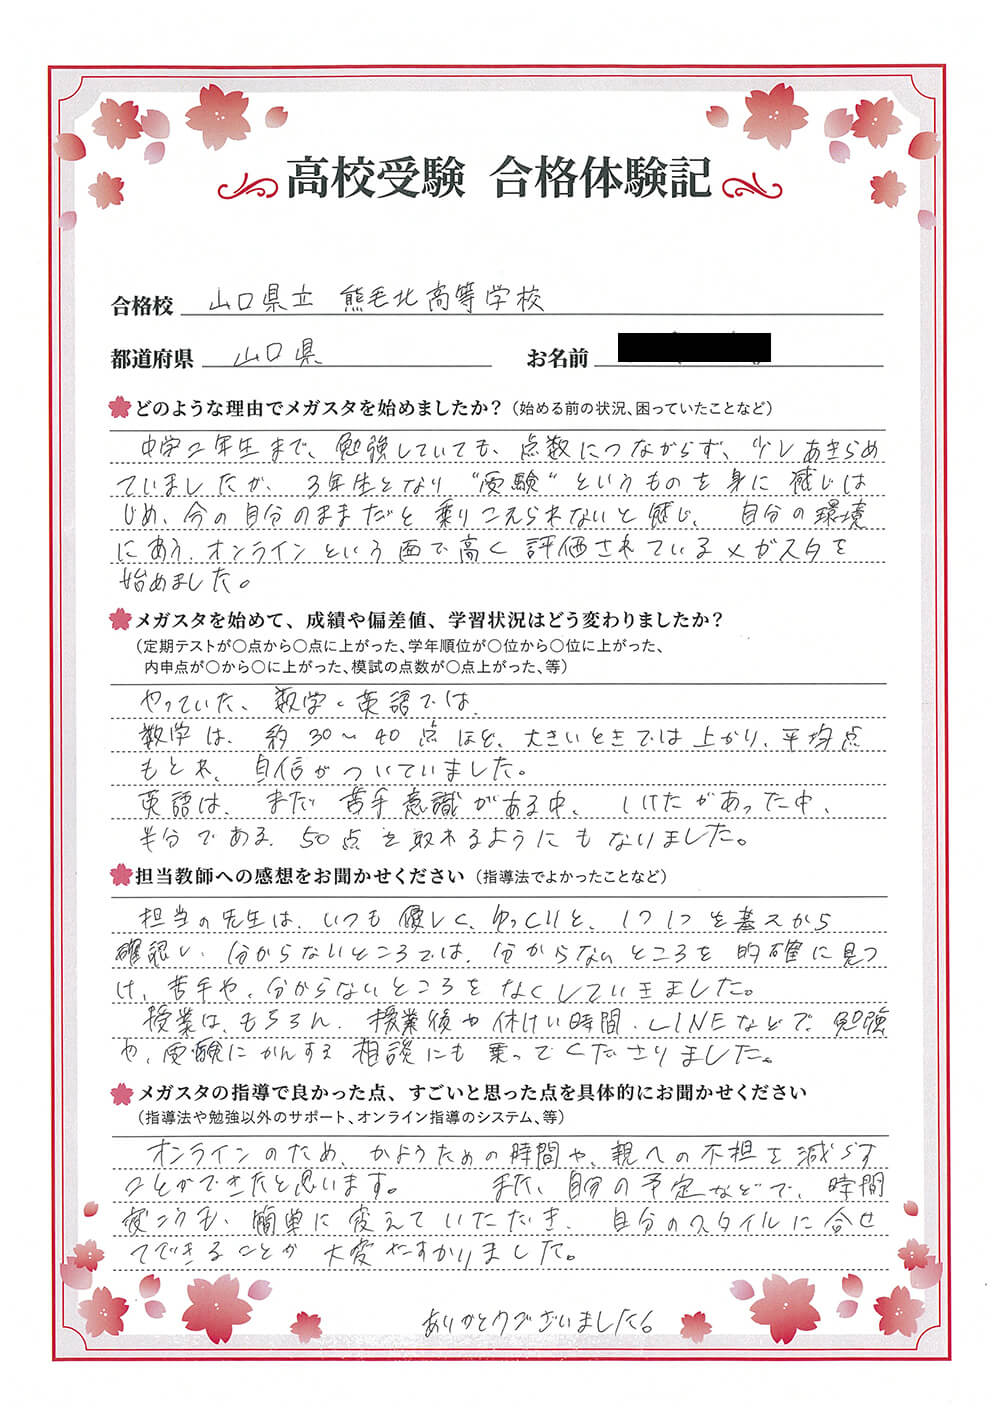 高校受験 合格体験記
合格校 山口県立 熊毛北高等学校
都道府県 山口県 お名前
どのような理由でメガスタを始めましたか？（始める前の状況、困っていたことなど）
中学2年生まで、勉強していても、点数につながらず、少しあきらめ
ていましたが、3年生となり"受験"というものを身に感じは
じめ、今の自分のままだと乗りこえられないと感じ、自分の環境
にあう、オンラインという面で高く評価されているメガスタを
始めました。
メガスタを始めて、成績や偏差値、学習状況はどう変わりましたか？
（定期テストが〇点から〇点に上がった、学年順位が〇位から〇位に上がった、
内申点が〇から〇に上がった、模試の点数が〇点上がった、等）
やっていた、数学・英語では、
数学は、約30～40点ほど、大きいときでは上がり、平均点
もとれ、自信がついていました。
英語は、まだ苦手意識がある中、1けたがあった中、
半分である、50点を取れるようにもなりました。
担当教師への感想をお聞かせください（指導法でよかったことなど）
担当の先生は、いつも優しく、ゆっくりと、1つ1つを基そから
確認し、分からないところでは、分からないところを的確に見つ
け、苦手や、分からないところをなくしていきました。
授業は、もちろん、授業後や休けい時間、LINEなどで、勉強
や、受験にかんする相談にも乗ってくださりました。
メガスタの指導で良かった点、すごいと思った点を具体的にお聞かせください
（指導法や勉強以外のサポート、オンライン指導のシステム、等）
オンラインのため、かようための時間や、親への不担を減らす
ことができたと思います。 また、自分の予定などで、時間
変こうも、簡単に変えていただき、自分のスタイルに合せ
てできることが大変たすかりました。
ありがとうございました。